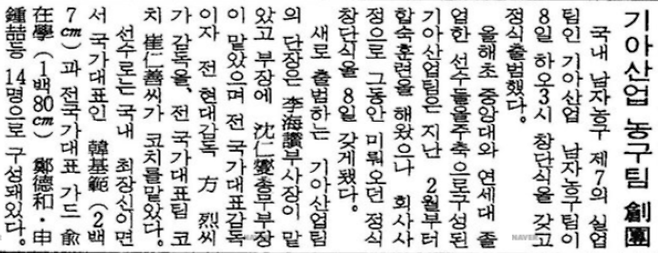 기아산업 농구팀 創團
국내 남자농구 제7의 실업
팀인 기아산업 남자농구팀이
8일 하오3시 창단식을 갖고
정식출범했다.
올해초 중앙대와 연세대 졸
업한 선수들을주축으로구성된
기아산업팀은 지난 2월부터
합숙훈련을 해왔으나 회사사
정으로 그동안 미뤄오던 정식
창단식을 8일 갖게됐다.
새로 출범하는 기아산업팀
의 단장은 李海讚부사장이 맡
았고 부장에 沈仁燮총무부장
이 맡았으며 전 국가대표감독
이자 전 현대감독 方 烈씨
가 감독을, 전 국가대표팀 코
치 崔仁善씨가 코치를맡았다.
선수로는 국내 최장신이면
서 국가대표인 韓基範(2백
7cm)과 전국가대표 가드 兪
在學(1백80cm) 鄭德和·申
鍾喆등 14명으로 구성돼있다.
NAVER
NAVER